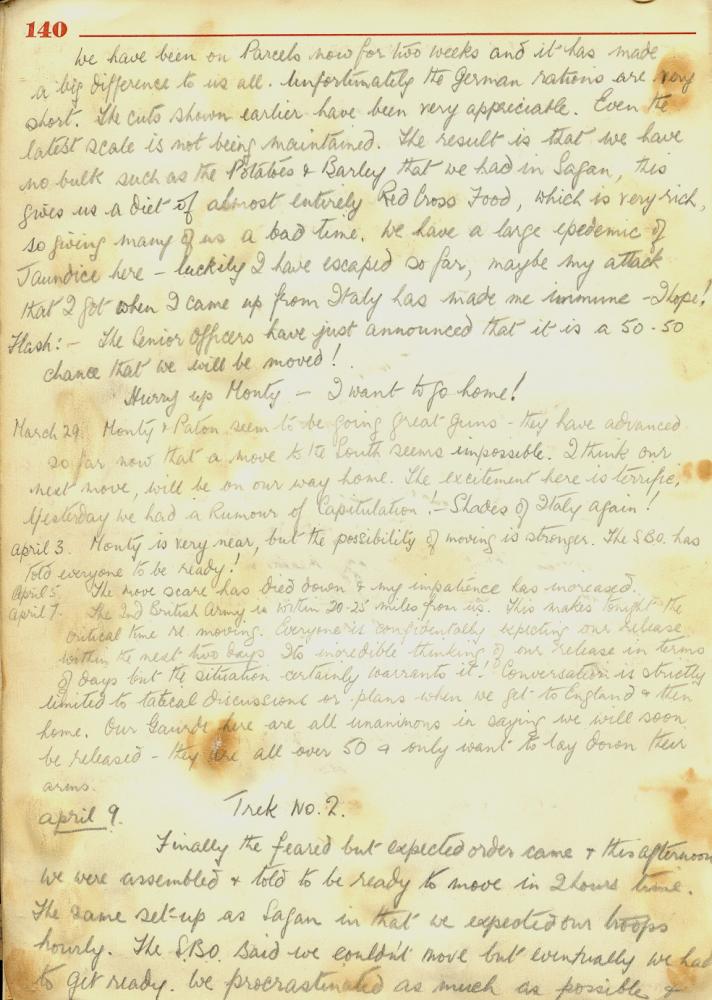 140
We have been on Parcels now for two weeks and it has made
a big difference to us all. Unfortunately the German rations are very
short. The cuts shown earlier have been very appreciable. Even the
latest scale is not being maintained. The result is that we have
no bulk such as the Potatoes & Barley that we had in Sagan, this
gives us a diet of almost entirely Red Cross Food, which is very rich,
so giving many of us a bad time. We have a large epedemic of
Jaundice here – luckily I have escaped so far, maybe my attack
that I got when I came up from Italy has made me immune – I hope!
Flash:– The Senior Officers have just announced that it is a 50-50
chance that we will be moved!
Hurry up Monty – I want to go home!
March 29. Monty & Paton seem to be going great guns – they have advanced
so far now that a move to the South seems impossible. I think our
next move, will be on our way home. The excitement here is terrific,
Yesterday we had a Rumour of Capitulation! – Shades of Italy again!
April 3. Monty is very near, but the possibility of moving is stronger. The SBO. has
told everyone to be ready!
April 5. The move scare has died down & my impatience has increased.
April 7. The 2nd British Army is within 20-25 miles from us. This makes tonight the
critical time re moving. Everyone is confidentally expecting our release
within the next two days Its incredible thinking of our release in terms
of days but the situation certainly warrants it! Conversation is strictly
limited to tatical discussions or plans when we get to England & then
home. Our Gaurds here are all unanimous in saying we will soon
be released – they are all over 50 & only want to lay down their
arms.
April 9. Trek No. 2.
Finally the feared but expected order came & this afternoon
we were assembled & told to be ready to move in 2 hours time.
The same set-up as Sagan in that we expected our troops
hourly. The S.B.O. said we couldn't move but eventually we had
to get ready. We procrastinated as much as possible &